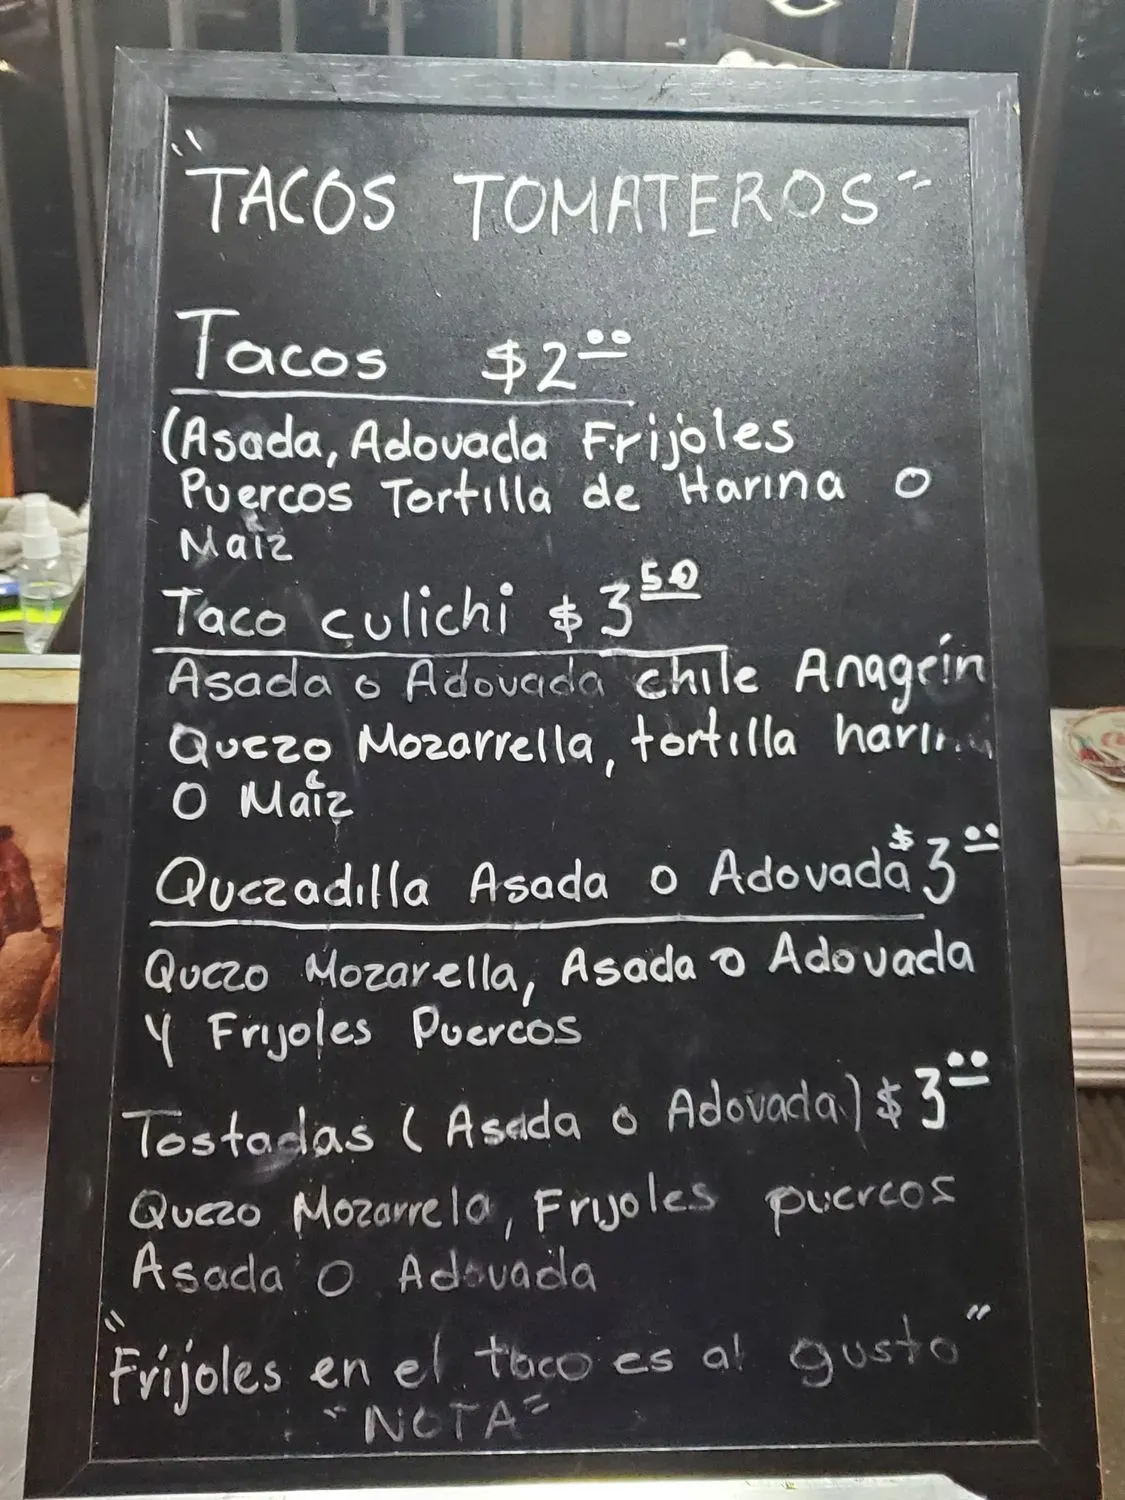 "TACOS TOMATEROS"
Tacos $2.00
(Asada, Adovada Frijoles
Puercos Tortilla de Harina o
Maiz
Taco culichi $3.50
Asada o Adovada chile Anagein
Quezo Mozarrella, tortilla harina
O Maiz
Quezadilla Asada o Adovada $3.00
Quezo Mozarella, Asada o Adovada
Y Frijoles Puercos
Tostadas (Asada o Adovada) $3.00
Quezo Mozarrela, Frijoles puercos
Asada O Adovada
"Frijoles en el taco es al gusto"
"NOTA"